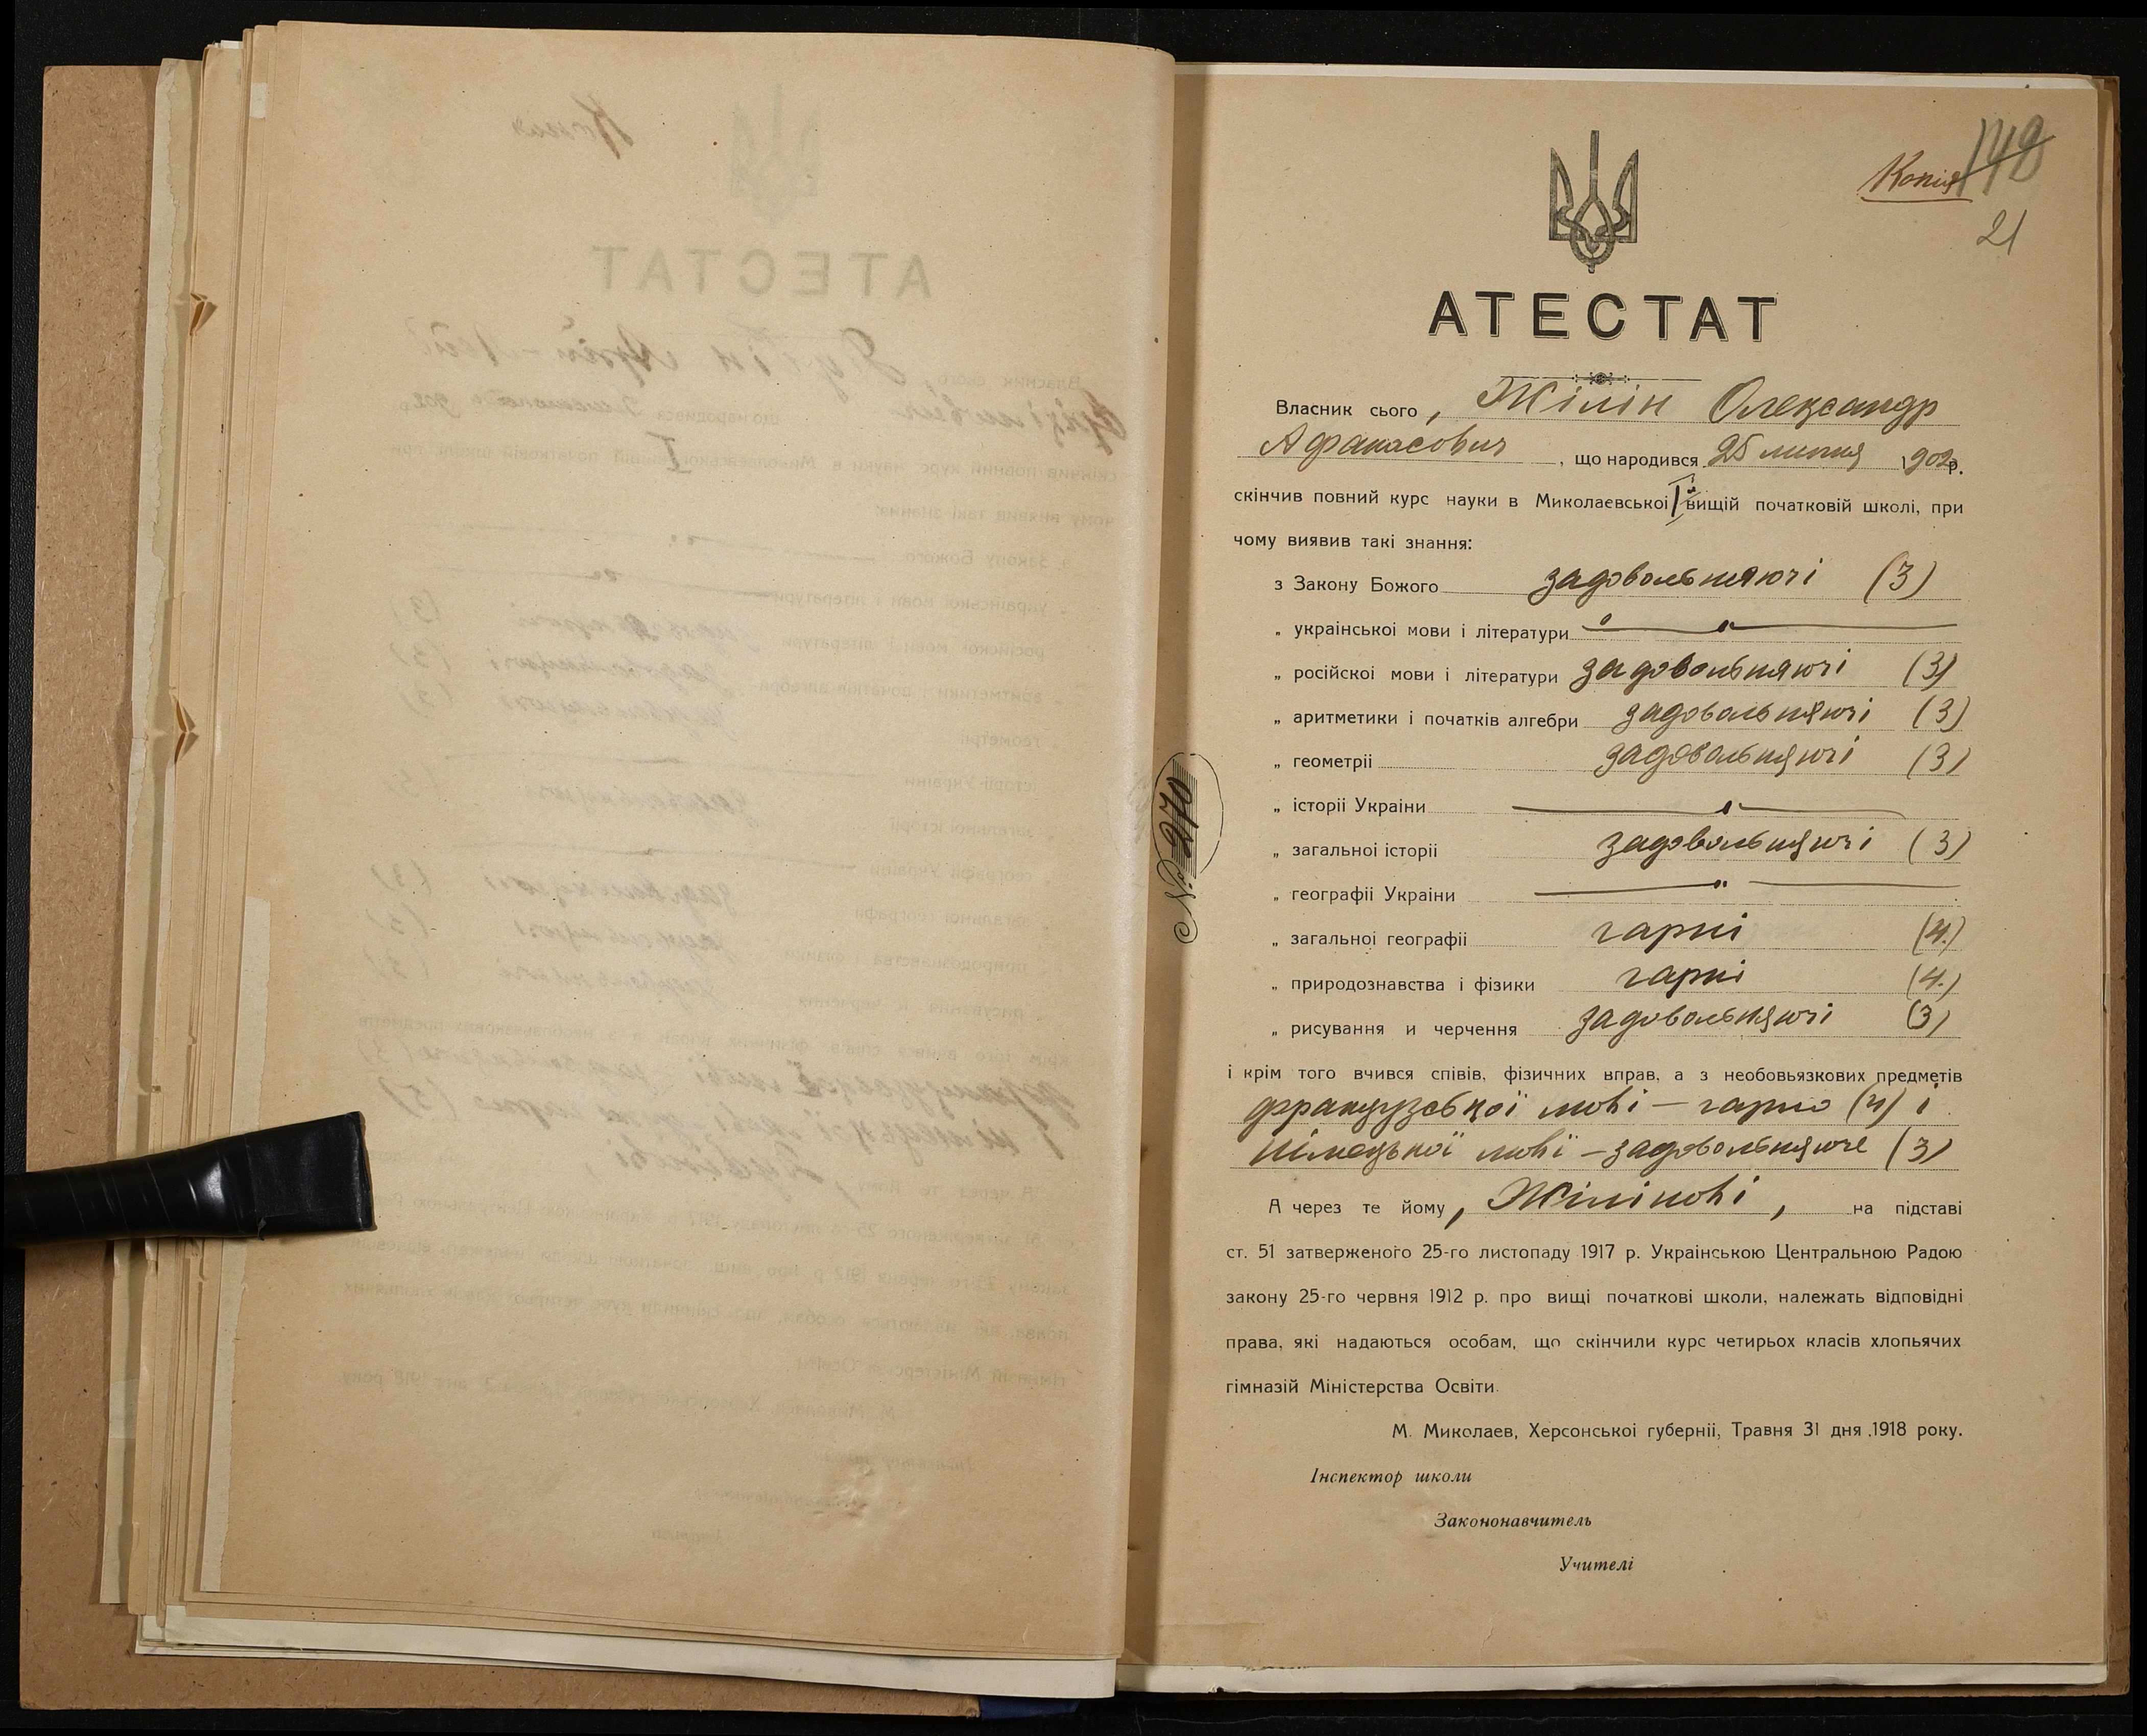 Копія
148
21
АТЕСТАТ
Власник сього, Жілін Олександр
Афанасович, що народився 25 липня 1902 р.
скінчив повний курс науки в Миколаєвської Iй вищій початковій школі, при
чому виявив такі знання:
з Закону Божого задовольняючі (3)
„ українськоі мови і літератури — „ —
„ російскоі мови і літератури задовольняючі (3)
„ аритметики і початків алгебри задовольняючі (3)
„ геометріі задовольняючі (3)
„ історіі Украіни — „ —
„ загальноі історіі задовольняючі (3)
„ географіі Украіни — „ —
„ загальноі географіі гарні (4.)
„ природознавства і фізики гарні (4.)
„ рисування и черчення задовольняючі (3)
і крім того вчився співів, фізичних вправ, а з необовьязкових предметів
французської мові — гарно (4) і
німецької мові — задовольняюче (3)
А через те йому, Жілінові, на підставі
ст. 51 затверженого 25-го листопаду 1917 р. Украінською Центральною Радою
закону 25-го червня 1912 р. про вищі початкові школи, належать відповідні
права, які надаються особам, що скінчили курс четирьох класів хлопьячих
гімназій Міністерства Освіти.
М. Миколаев, Херсонськоі губерніі, Травня 31 дня 1918 року.
Інспектор школи
Законоnавчитель
Учителі